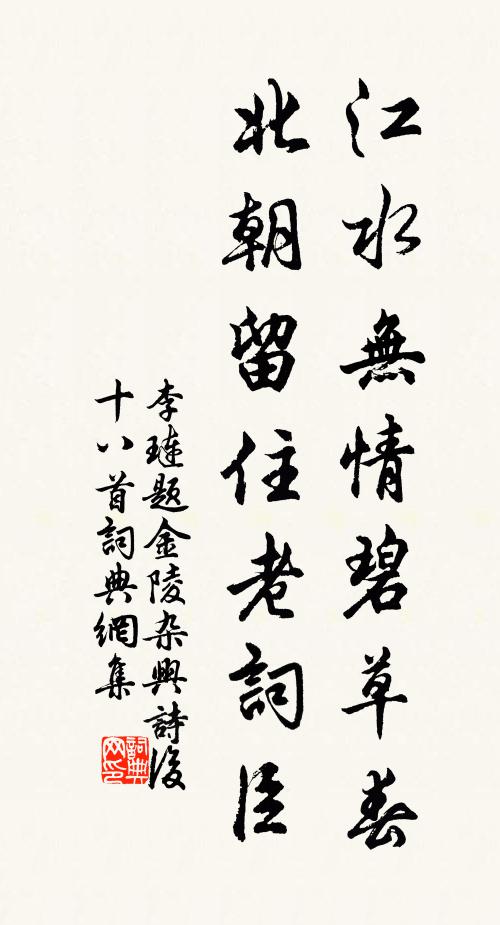 江水無情碧草春
北朝留住老詞臣
李璉題金陵杂興詩後
十八首詞典網集
詞典网印